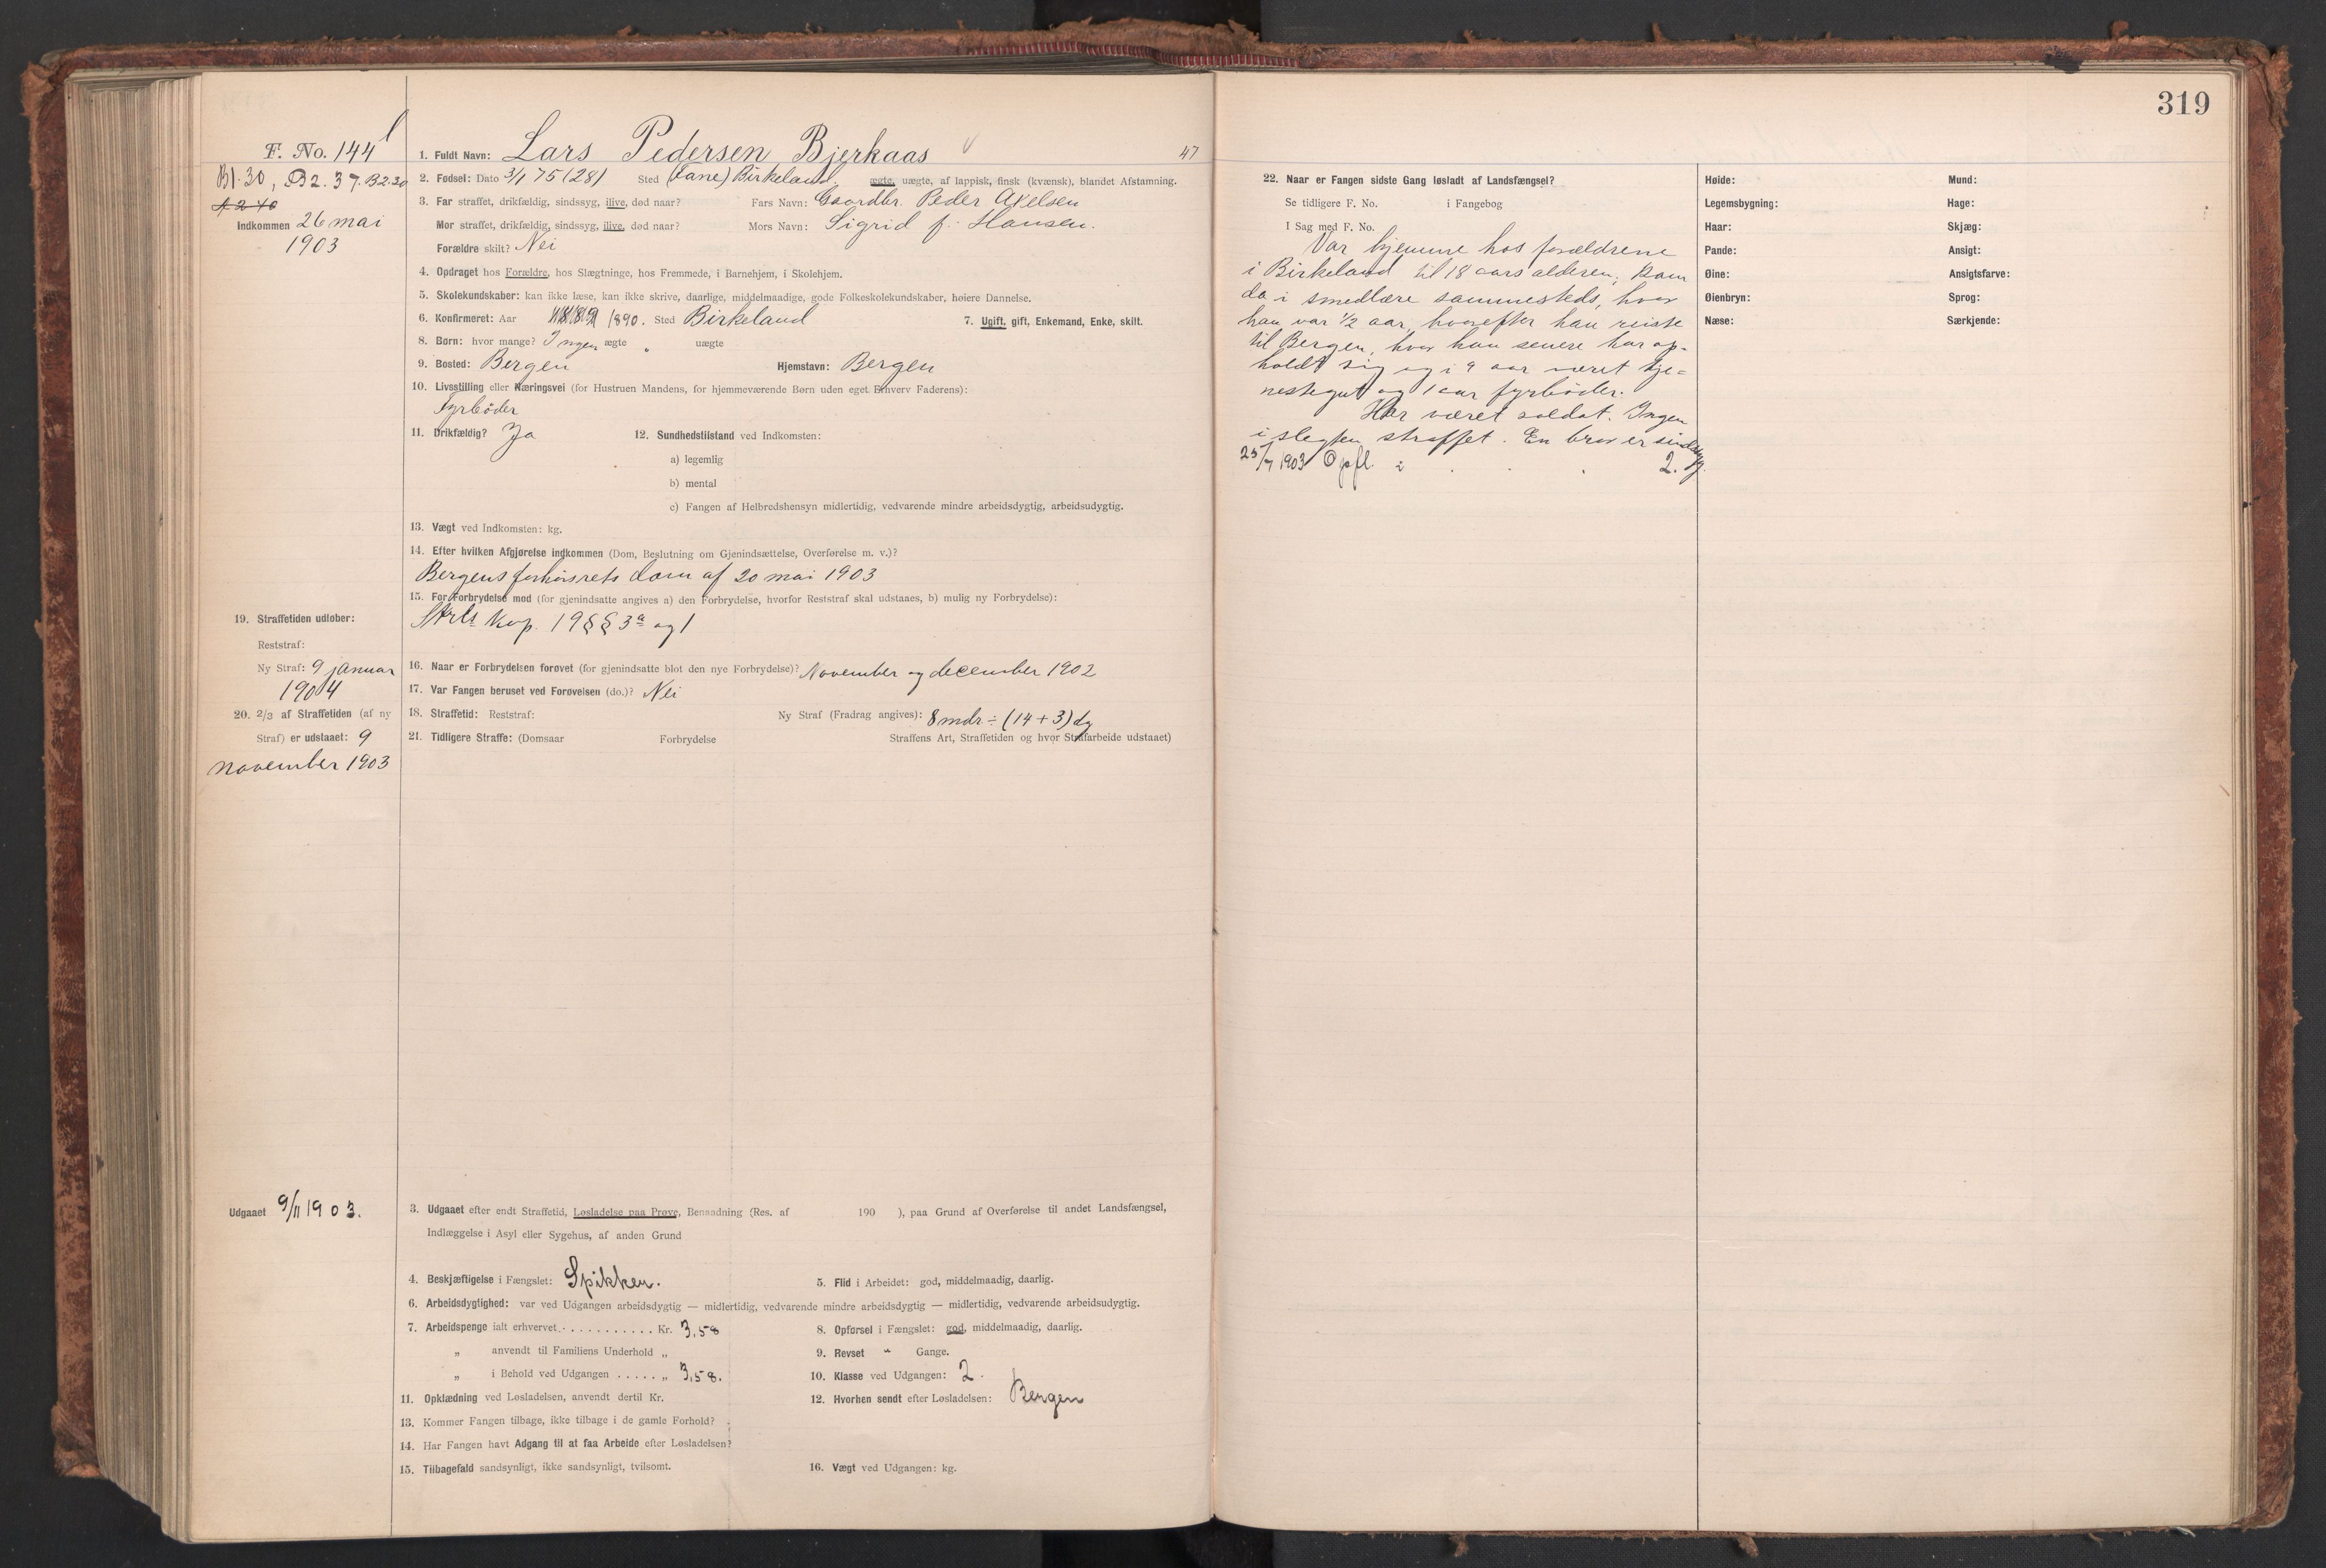 319
F. No. 144
B1.30, B2.37. B2.30
A 2 40
Indkommen 26 mai
1903
1. Fuldt Navn: Lars Pedersen Bjerkaas
47
2. Fødsel: Dato 3/1 75 (28) Sted (Fane) Birkeland ægte, uægte, af lappisk, finsk (kvænsk), blandet Afstamning.
3. Far straffet, drikfældig, sindssyg, ilive, død naar? Fars Navn: Gaardbr. Peder Axelsen
Mor straffet, drikfældig, sindssyg, ilive, død naar? Mors Navn: Sigrid f. Hansen.
Forældre skilt? Nei
4. Opdraget hos Forældre, hos Slægtninge, hos Fremmede, i Barnehjem, i Skolehjem.
5. Skolekundskaber: kan ikke læse, kan ikke skrive, daarlige, middelmaadige, gode Folkeskolekundskaber, høiere Dannelse.
6. Konfirmeret: Aar 1890. Sted Birkeland 7. Ugift, gift, Enkemand, Enke, skilt.
8. Børn: hvor mange? Ingen ægte „ uægte
9. Bosted: Bergen Hjemstavn: Bergen
10. Livsstilling eller Næringsvei (for Hustruen Mandens, for hjemmeværende Børn uden eget Erhverv Faderens):
Fyrbøder
11. Drikfældig? Ja 12. Sundhedstilstand ved Indkomsten:
a) legemlig
b) mental
c) Fangen af Helbredshensyn midlertidig, vedvarende mindre arbeidsdygtig, arbeidsudygtig.
13. Vægt ved Indkomsten: kg.
14. Efter hvilken Afgjørelse indkommen (Dom, Beslutning om Gjenindsættelse, Overførelse m. v.)?
Bergens forhørsrets dom af 20 mai 1903
15. For Forbrydelse mod (for gjenindsatte angives a) den Forbrydelse, hvorfor Reststraf skal udstaaes, b) mulig ny Forbrydelse):
Strls kap. 19 §§ 3a og 1
16. Naar er Forbrydelsen forøvet (for gjenindsatte blot den nye Forbrydelse)? November og december 1902
17. Var Fangen beruset ved Forøvelsen (do.)? Nei
18. Straffetid: Reststraf: Ny Straf (Fradrag angives): 8 mdr ÷ (14 + 3) dg
19. Straffetiden udløber:
Reststraf:
Ny Straf: 9 januar
1904
20. 2/3 af Straffetiden (af ny
Straf) er udstaaet: 9
november 1903
21. Tidligere Straffe: (Domsaar Forbrydelse Straffens Art, Straffetiden og hvor Strafarbeide udstaaet)
Udgaaet 9/11 1903.
3. Udgaaet efter endt Straffetid, Løsladelse paa Prøve, Benaadning (Res. af 190 ), paa Grund af Overførelse til andet Landsfængsel,
Indlæggelse i Asyl eller Sygehus, af anden Grund
4. Beskjæftigelse i Fængslet: Spikker. 5. Flid i Arbeidet: god, middelmaadig, daarlig.
6. Arbeidsdygtighed: var ved Udgangen arbeidsdygtig — midlertidig, vedvarende mindre arbeidsdygtig — midlertidig, vedvarende arbeidsudygtig.
7. Arbeidspenge ialt erhvervet . . . . . . . . . . Kr. 3,58 8. Opførsel i Fængslet: god, middelmaadig, daarlig.
„ anvendt til Familiens Underhold „ 9. Revset „ Gange.
„ i Behold ved Udgangen . . . . . „ 3,58. 10. Klasse ved Udgangen: 2.
11. Opklædning ved Løsladelsen, anvendt dertil Kr. 12. Hvorhen sendt efter Løsladelsen: Bergen
13. Kommer Fangen tilbage, ikke tilbage i de gamle Forhold?
14. Har Fangen havt Adgang til at faa Arbeide efter Løsladelsen?
15. Tilbagefald sandsynligt, ikke sandsynligt, tvilsomt. 16. Vægt ved Udgangen: kg.
22. Naar er Fangen sidste Gang løsladt af Landsfængsel?
Se tidligere F. No. i Fangebog
I Sag med F. No.
Var hjemme hos forældrene
i Birkeland til 18 aars alderen; kom
da i smedlære sammesteds, hvor
han var ½ aar, hvorefter han reiste
til Bergen, hvor han senere har op-
holdt sig og i 9 aar været tje=
nestegut og 1 aar fyrbøder.
Har været soldat. Ingen
i slegten straffet. En bror er sindssyg.
25/7 1903 Opfl. i 2.
Høide: Mund:
Legemsbygning: Hage:
Haar: Skjæg:
Pande: Ansigt:
Øine: Ansigtsfarve:
Øienbryn: Sprog:
Næse: Særkjende: